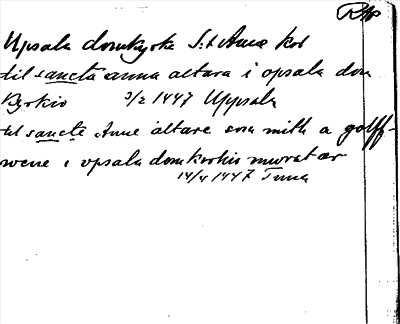 RAp
Upsala domkyrka S:t Anna kor
til sancta anna altara i opsala dom
kyrkio 3/2 1447 Uppsala
til sancte Anne altare som mith a golff-
wene i opsala domkirkio murat ær
14/4 1447 Tuna